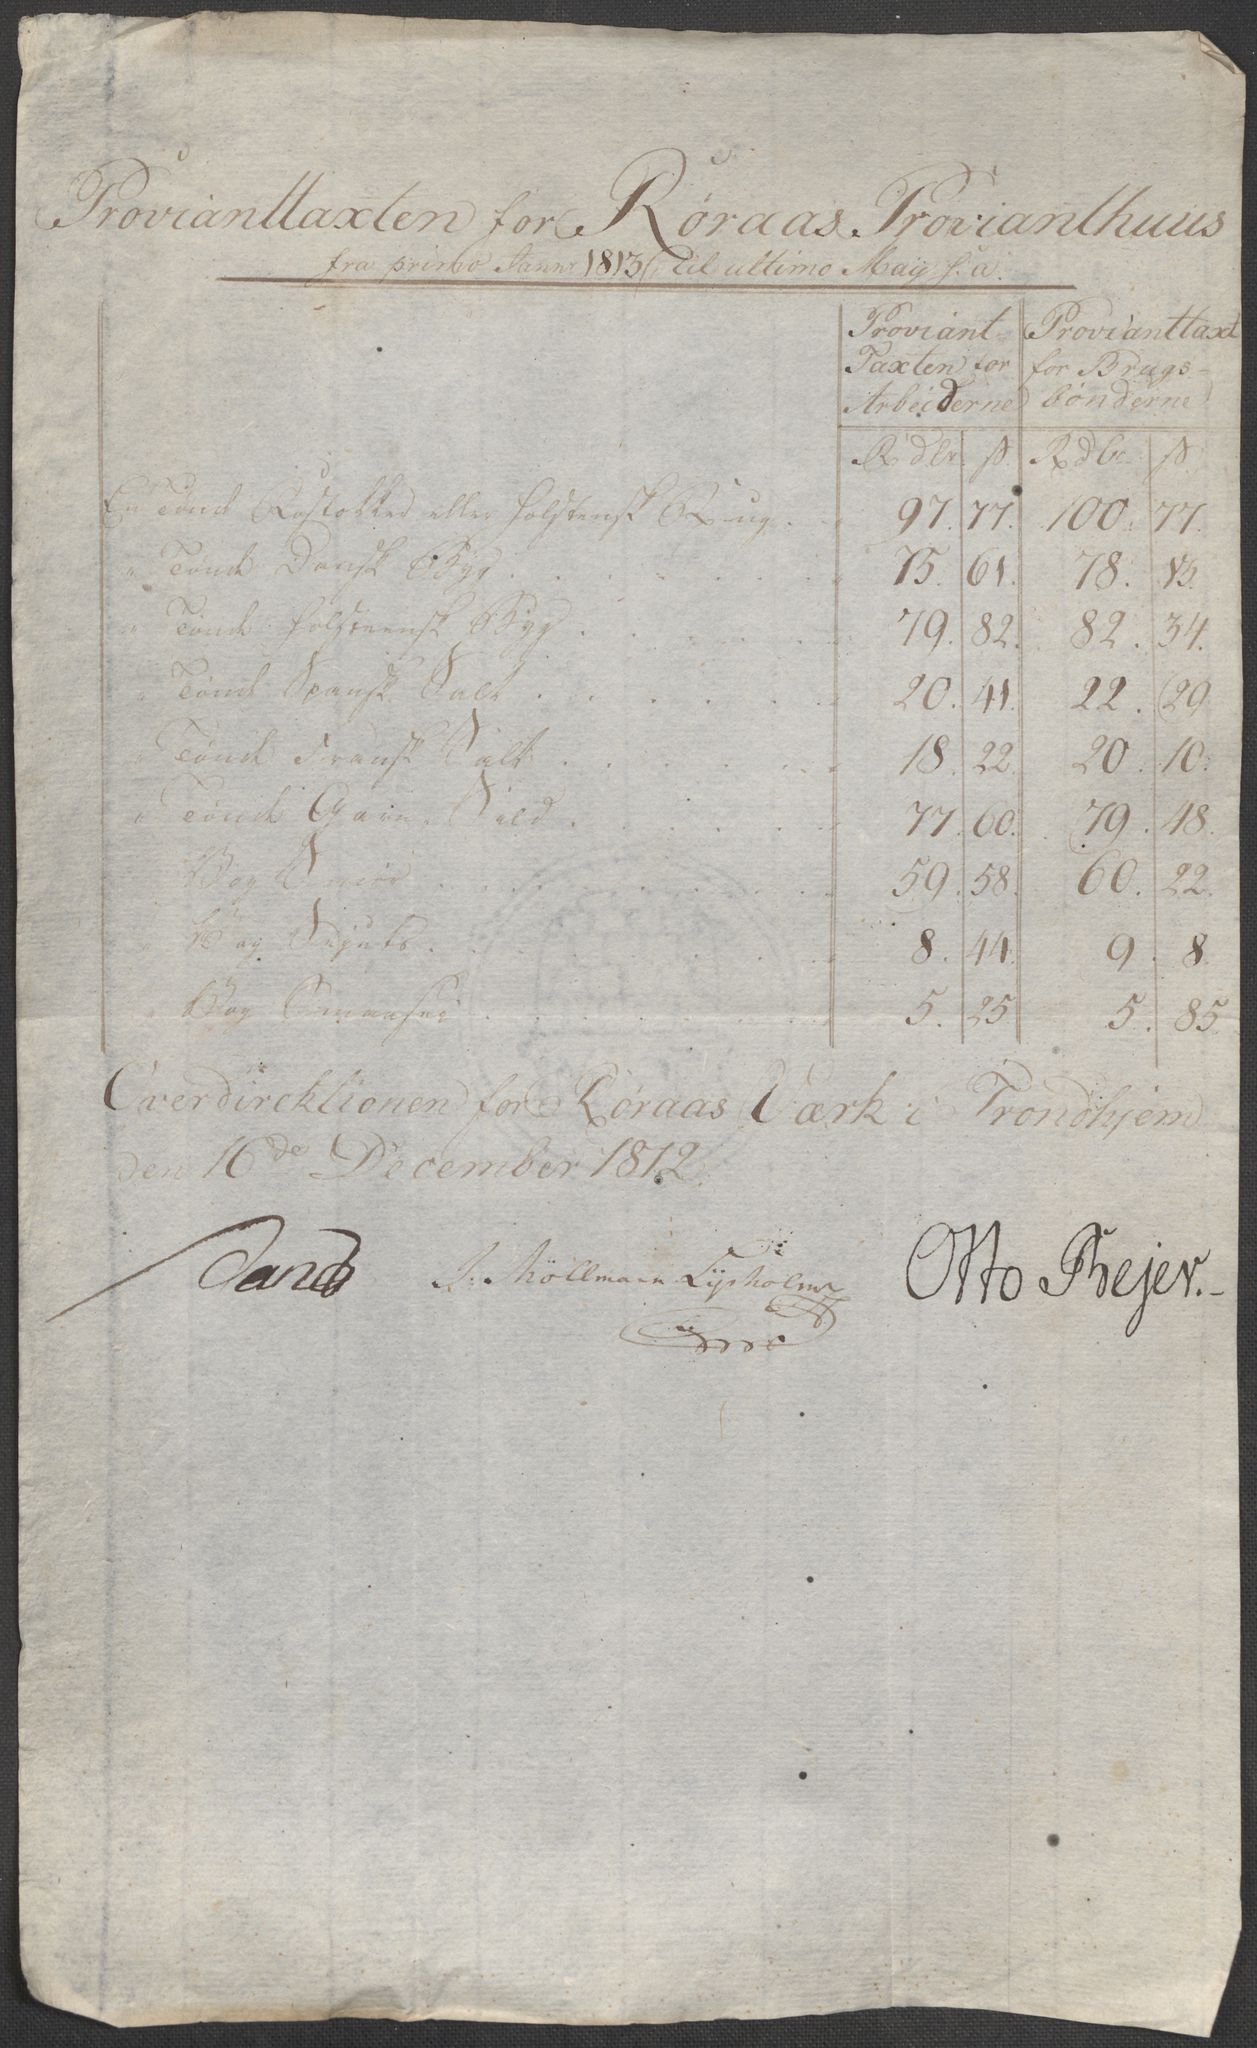 Provianttaxten for Røraas Provianthuus
fra primo Januar 1813 til ultimo Maij s: a:
Proviant- Taxten for Arbeiderne
Provianttaxt for Brugs- bønderne
Rdlr. ß Rdlr. ß
En Tønde Rostokker eller Holstensk Rug . . 97. 77. 100. 77.
" Tønde Dansk Byg . . . . . . 75. 61. 78. 13.
" Tønde Holsteensk Byg . . . . . 79. 82. 82. 34.
" Tønde Spansk Salt . . . . . . 20. 41. 22. 29
" Tønde Fransk Salt . . . . . . 18. 22. 20. 10.
" Tønde Garn Sild . . . . . . 77. 60. 79. 48.
" Vog Smør . . . . . . . . 59. 58. 60. 22.
" Vog . . . . . . . . 8. 44. 9. 8.
" Vog . . . . . . . . 5. 25 5. 85.
Overdirektionen for Røraas Værk i Trondhjem
den 16de December 1812.
Sand J. Möllmann Lysholm Otto Beyer.-